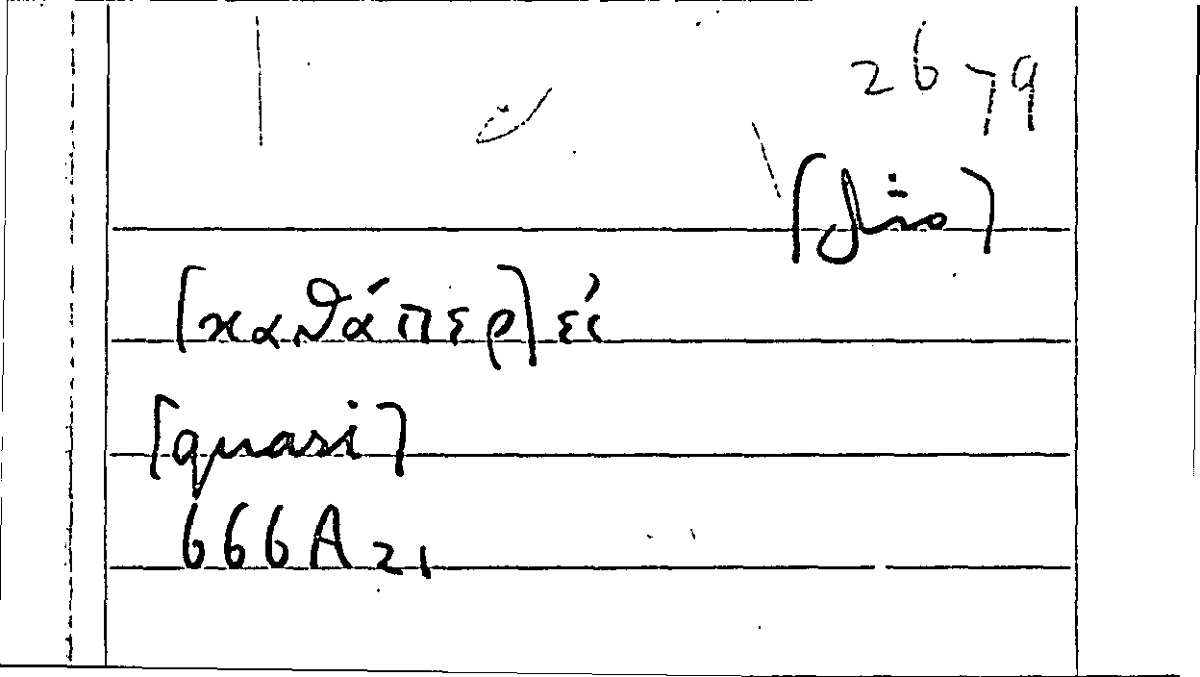 2679
[καθάπερ] εἰ
[quasi]
666A21